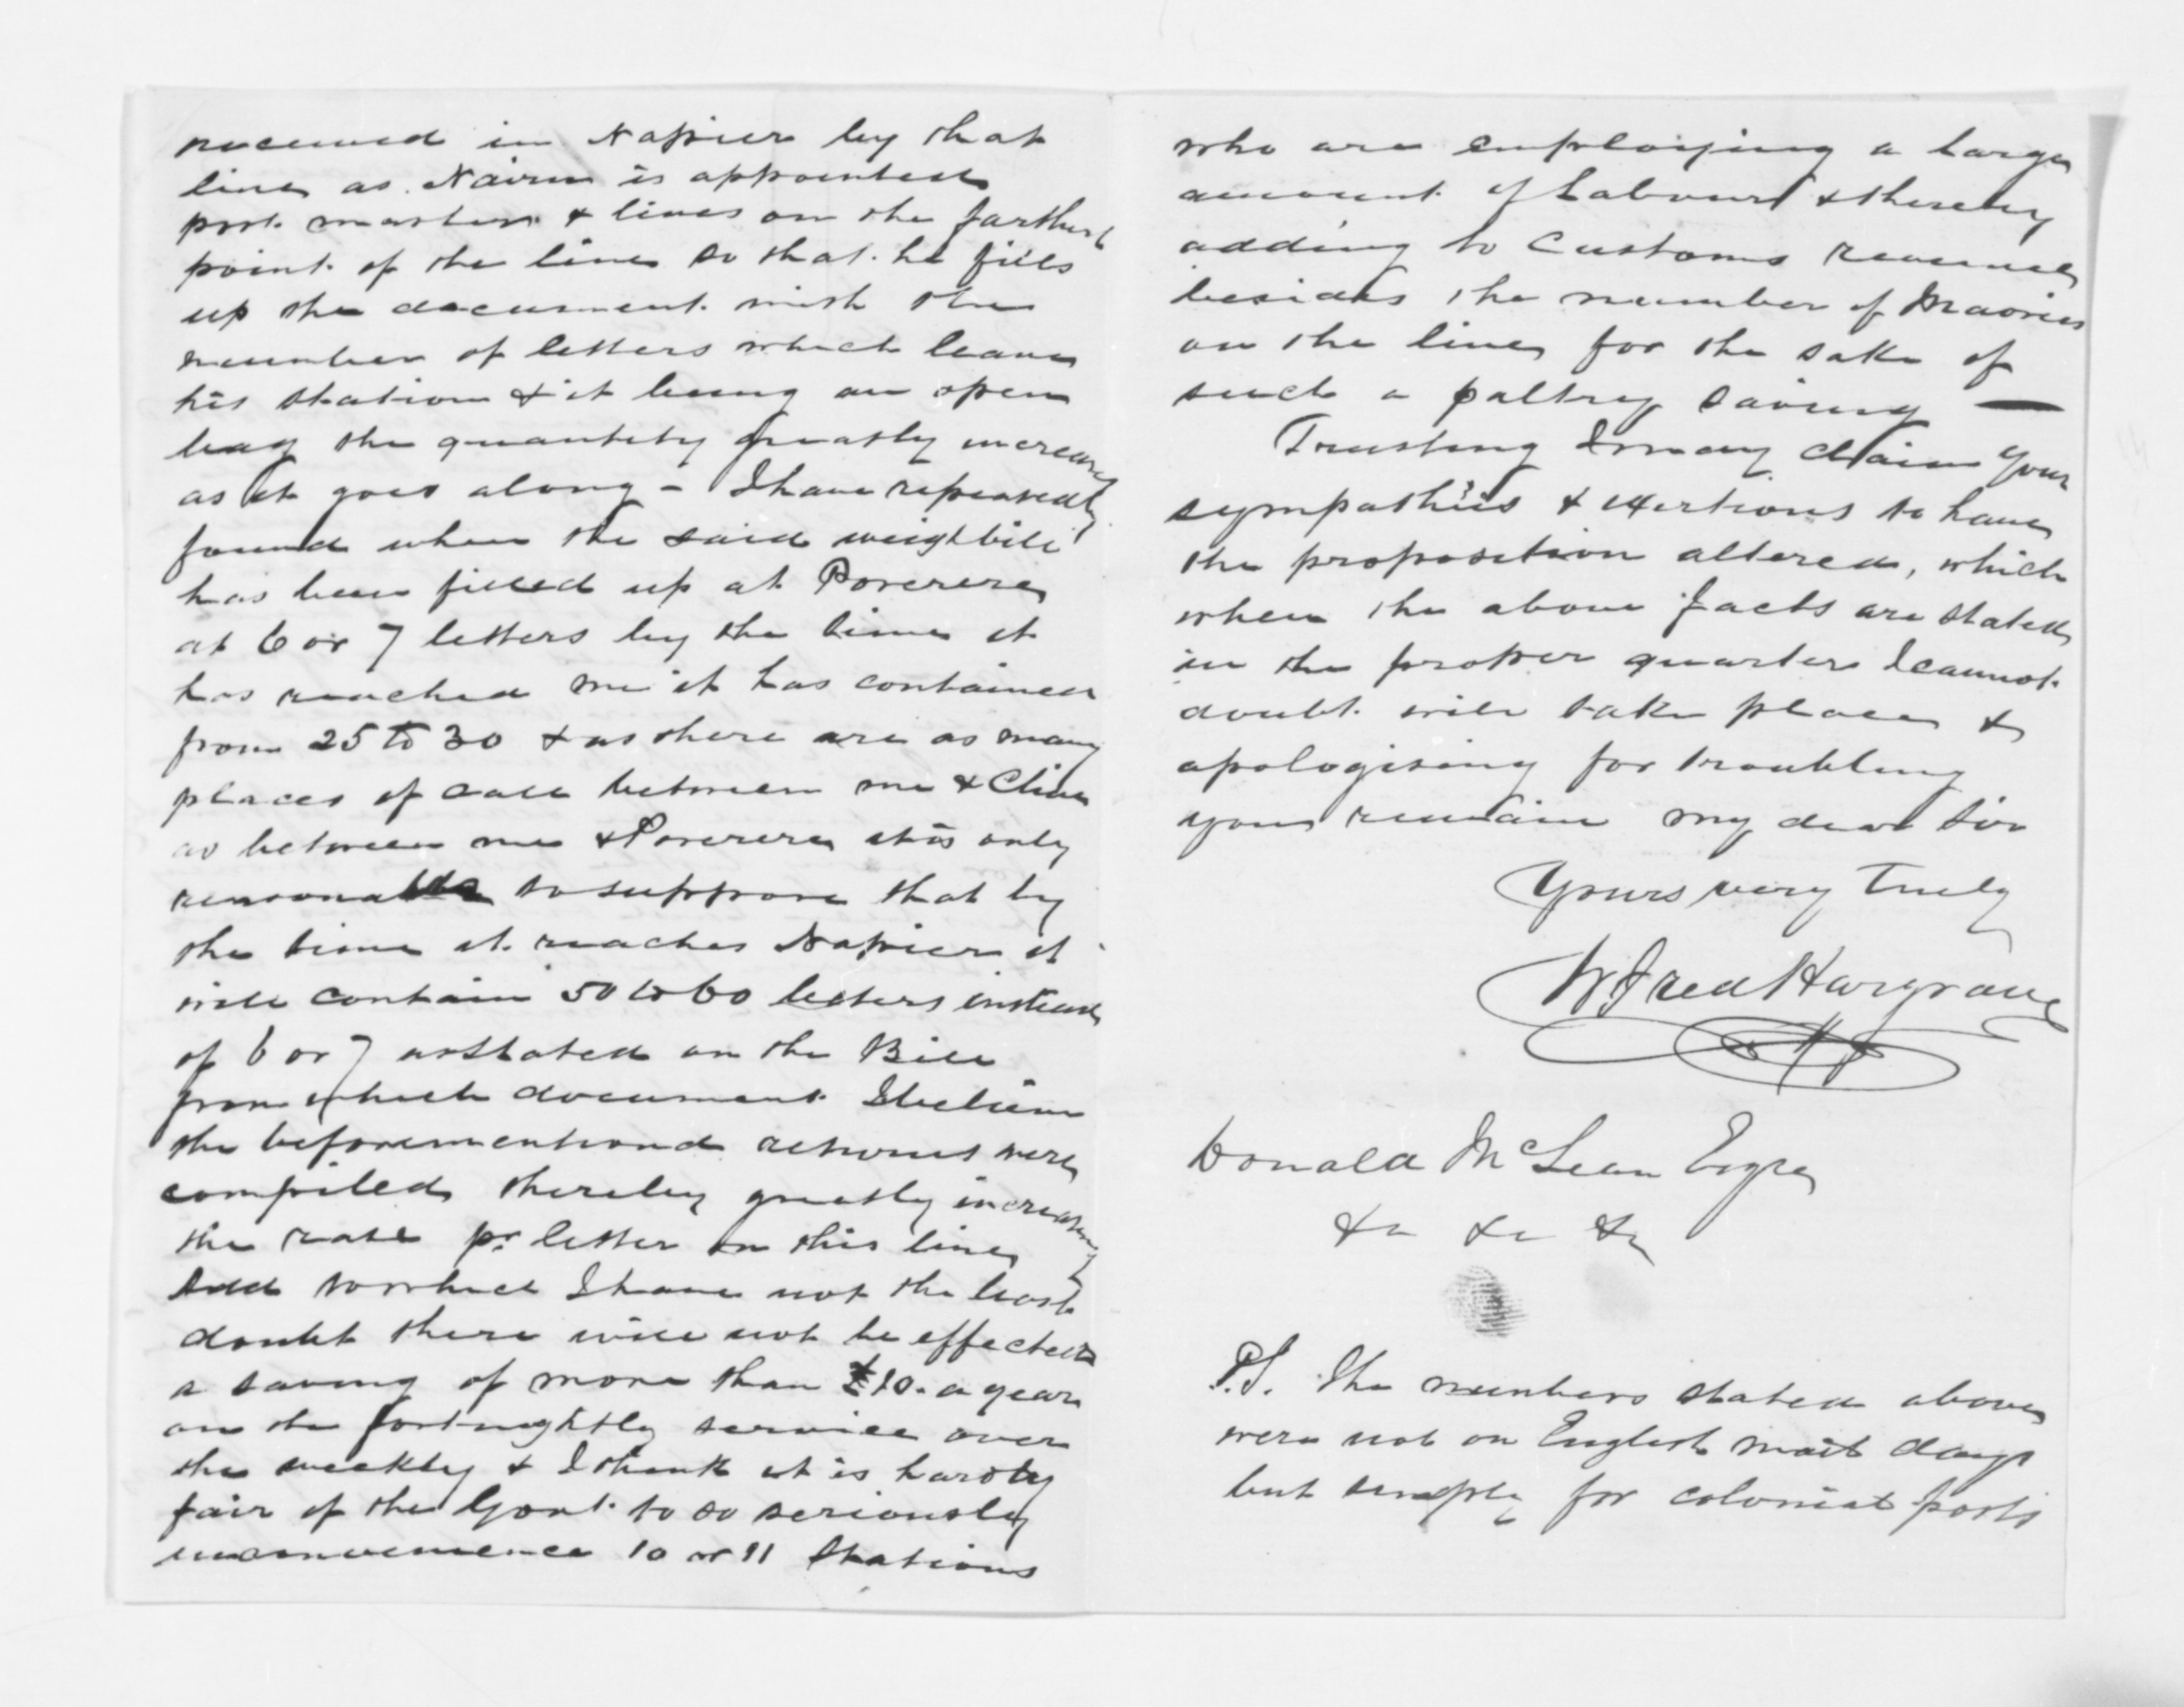 received in Napier by that
line as Nairn is appointed
post master & lives on the farthest
point of the line so that he fills
up the document with the
number of letters which leave
his station & it being an open
bag the quantity greatly increases
as it goes along - I have repeatedly
found when the said weighbill
has been filled up at Porerere
at 6 or 7 letters by the time it
has reached me it has contained
from 25 to 30 & as there are as many
places of call between me & Clive
as between me & Porerere it is only
reasonable to suppose that by
the time it reaches Napier it
will contain 50 to 60 letters instead
of 6 or 7 as stated on the Bill
from which document I believe
the beforementiond returns were
compiled thereby greatly increasing
the rate pr letter on this line
Add to which I have not the least
doubt there will not be effected
a saving of more than £10. a year
on the fortnightly service over
the weekly & I think it is hardly
fair of the Govt. to so seriously
inconvenience 10 or 11 Stations
who are employing a large
amount of Labour & thereby
adding to Customs revenue
besides the number of Maories
on the line for the sake of
such a paltry saving —
Trusting I may claim your
sympathies & exertions to have
the proposition altered, which
when the above facts are stated
in the proper quarter I cannot
doubt will take place &
apologising for troubling
you remain my dear Sir
Yours very Truly
W Fred Hargrave
Donald McLean Esqre
&c &c &c
P.S. The numbers stated above
were not on English mail days
but simply for colonial posts